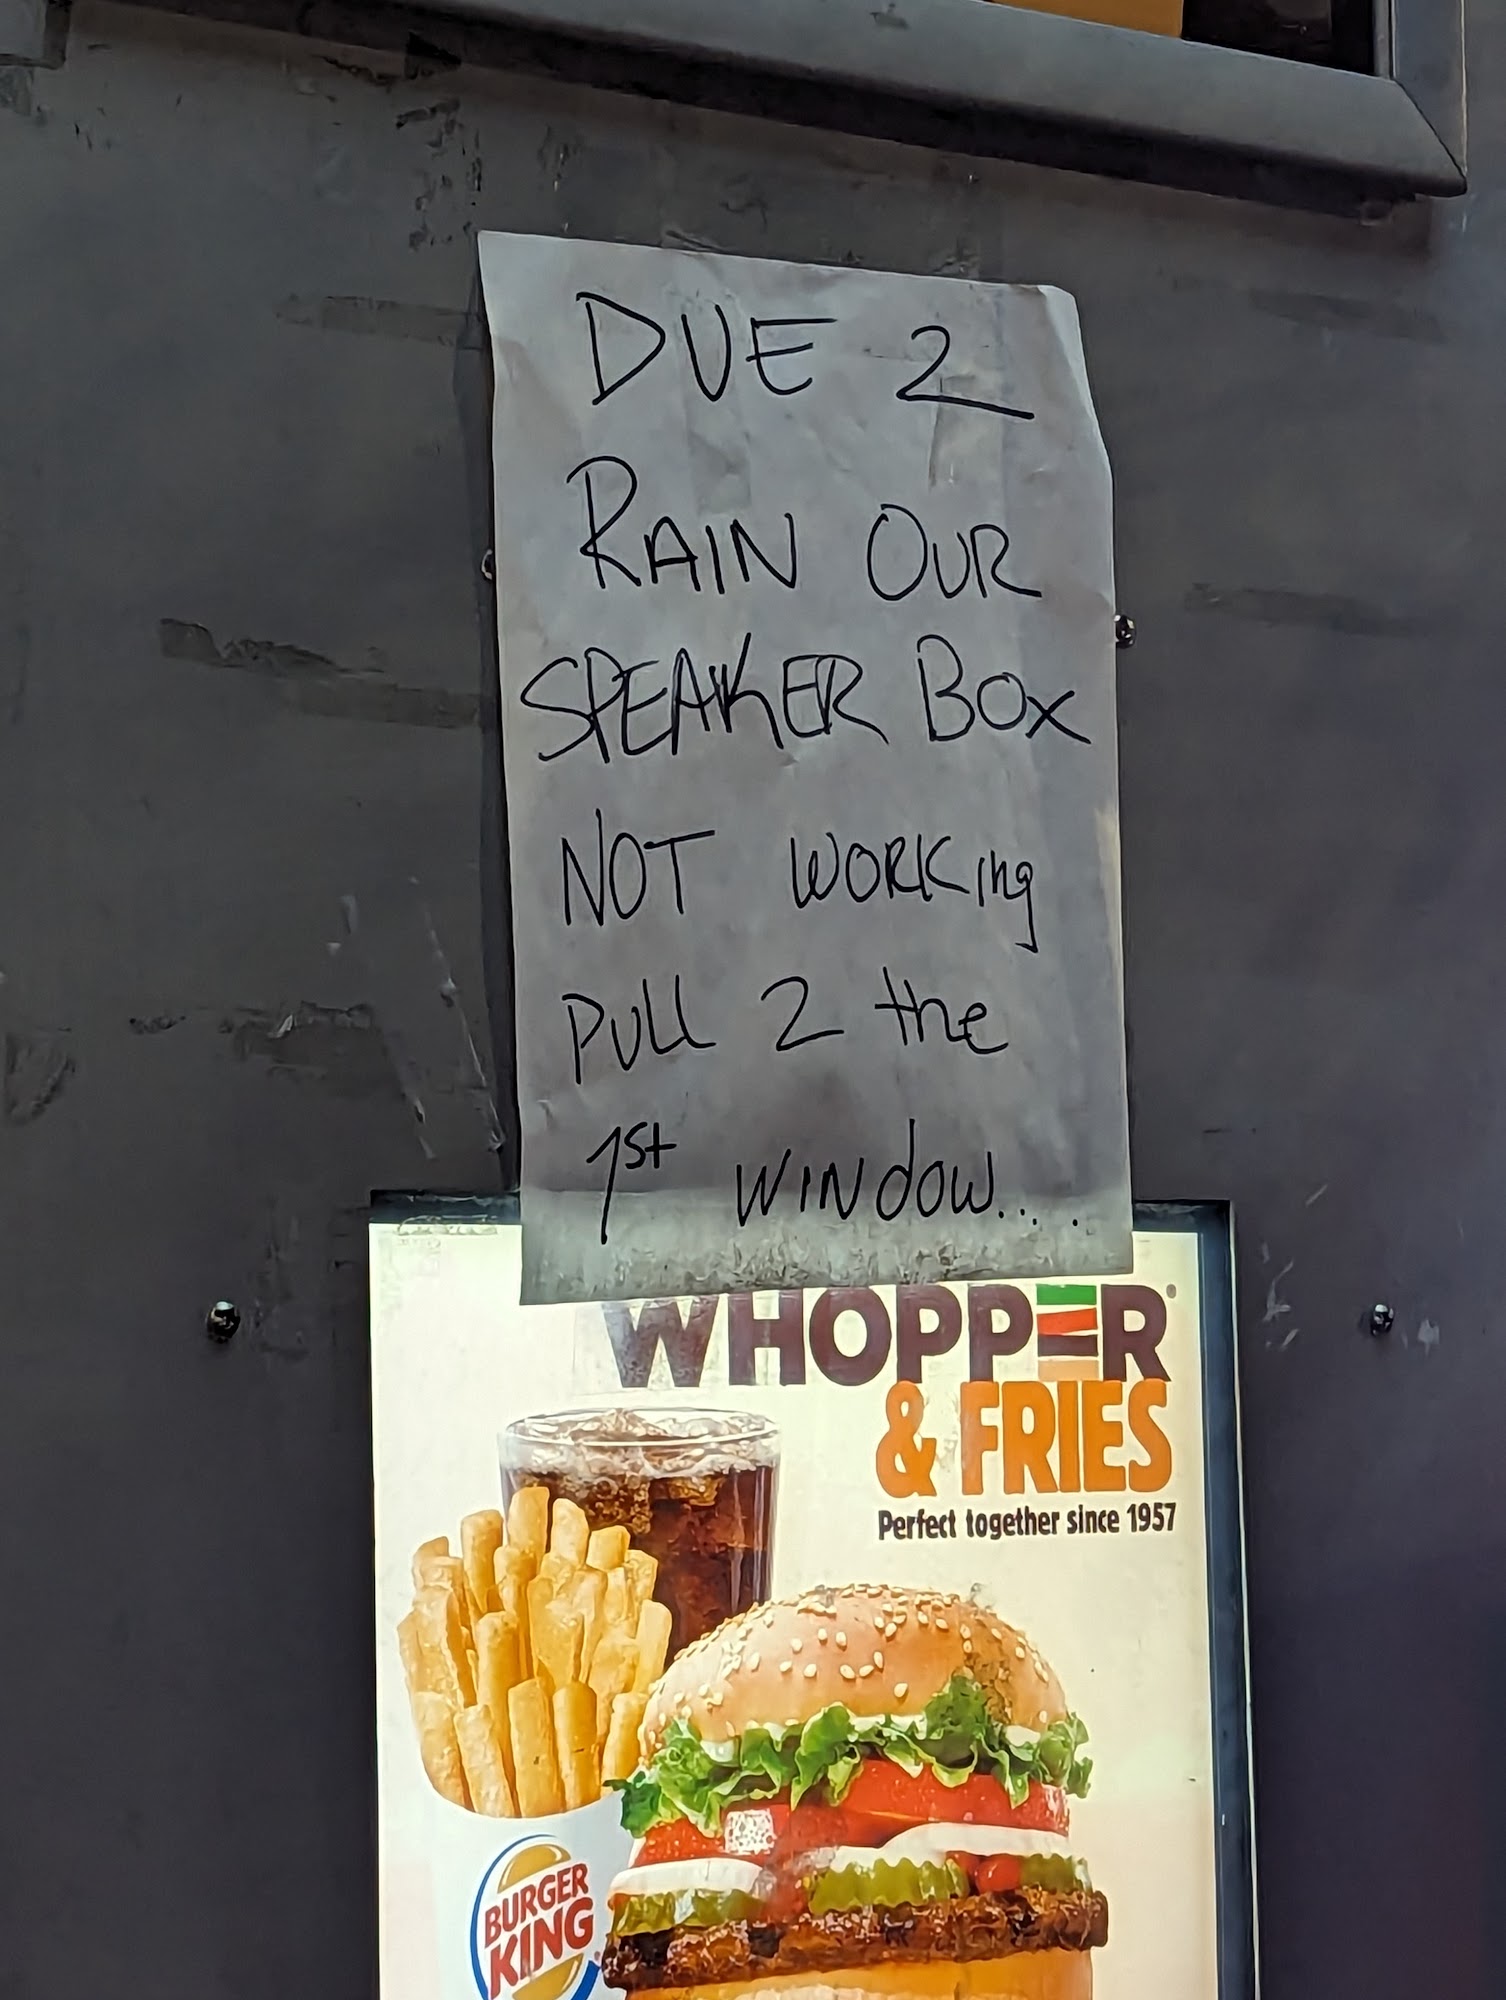 DUE 2
RAIN OUR
SPEAKER BOX
NOT WORKing
PULL 2 the
1st WINdOW....
WHOPPER®
& FRIES
Perfect together since 1957
BURGER
KING